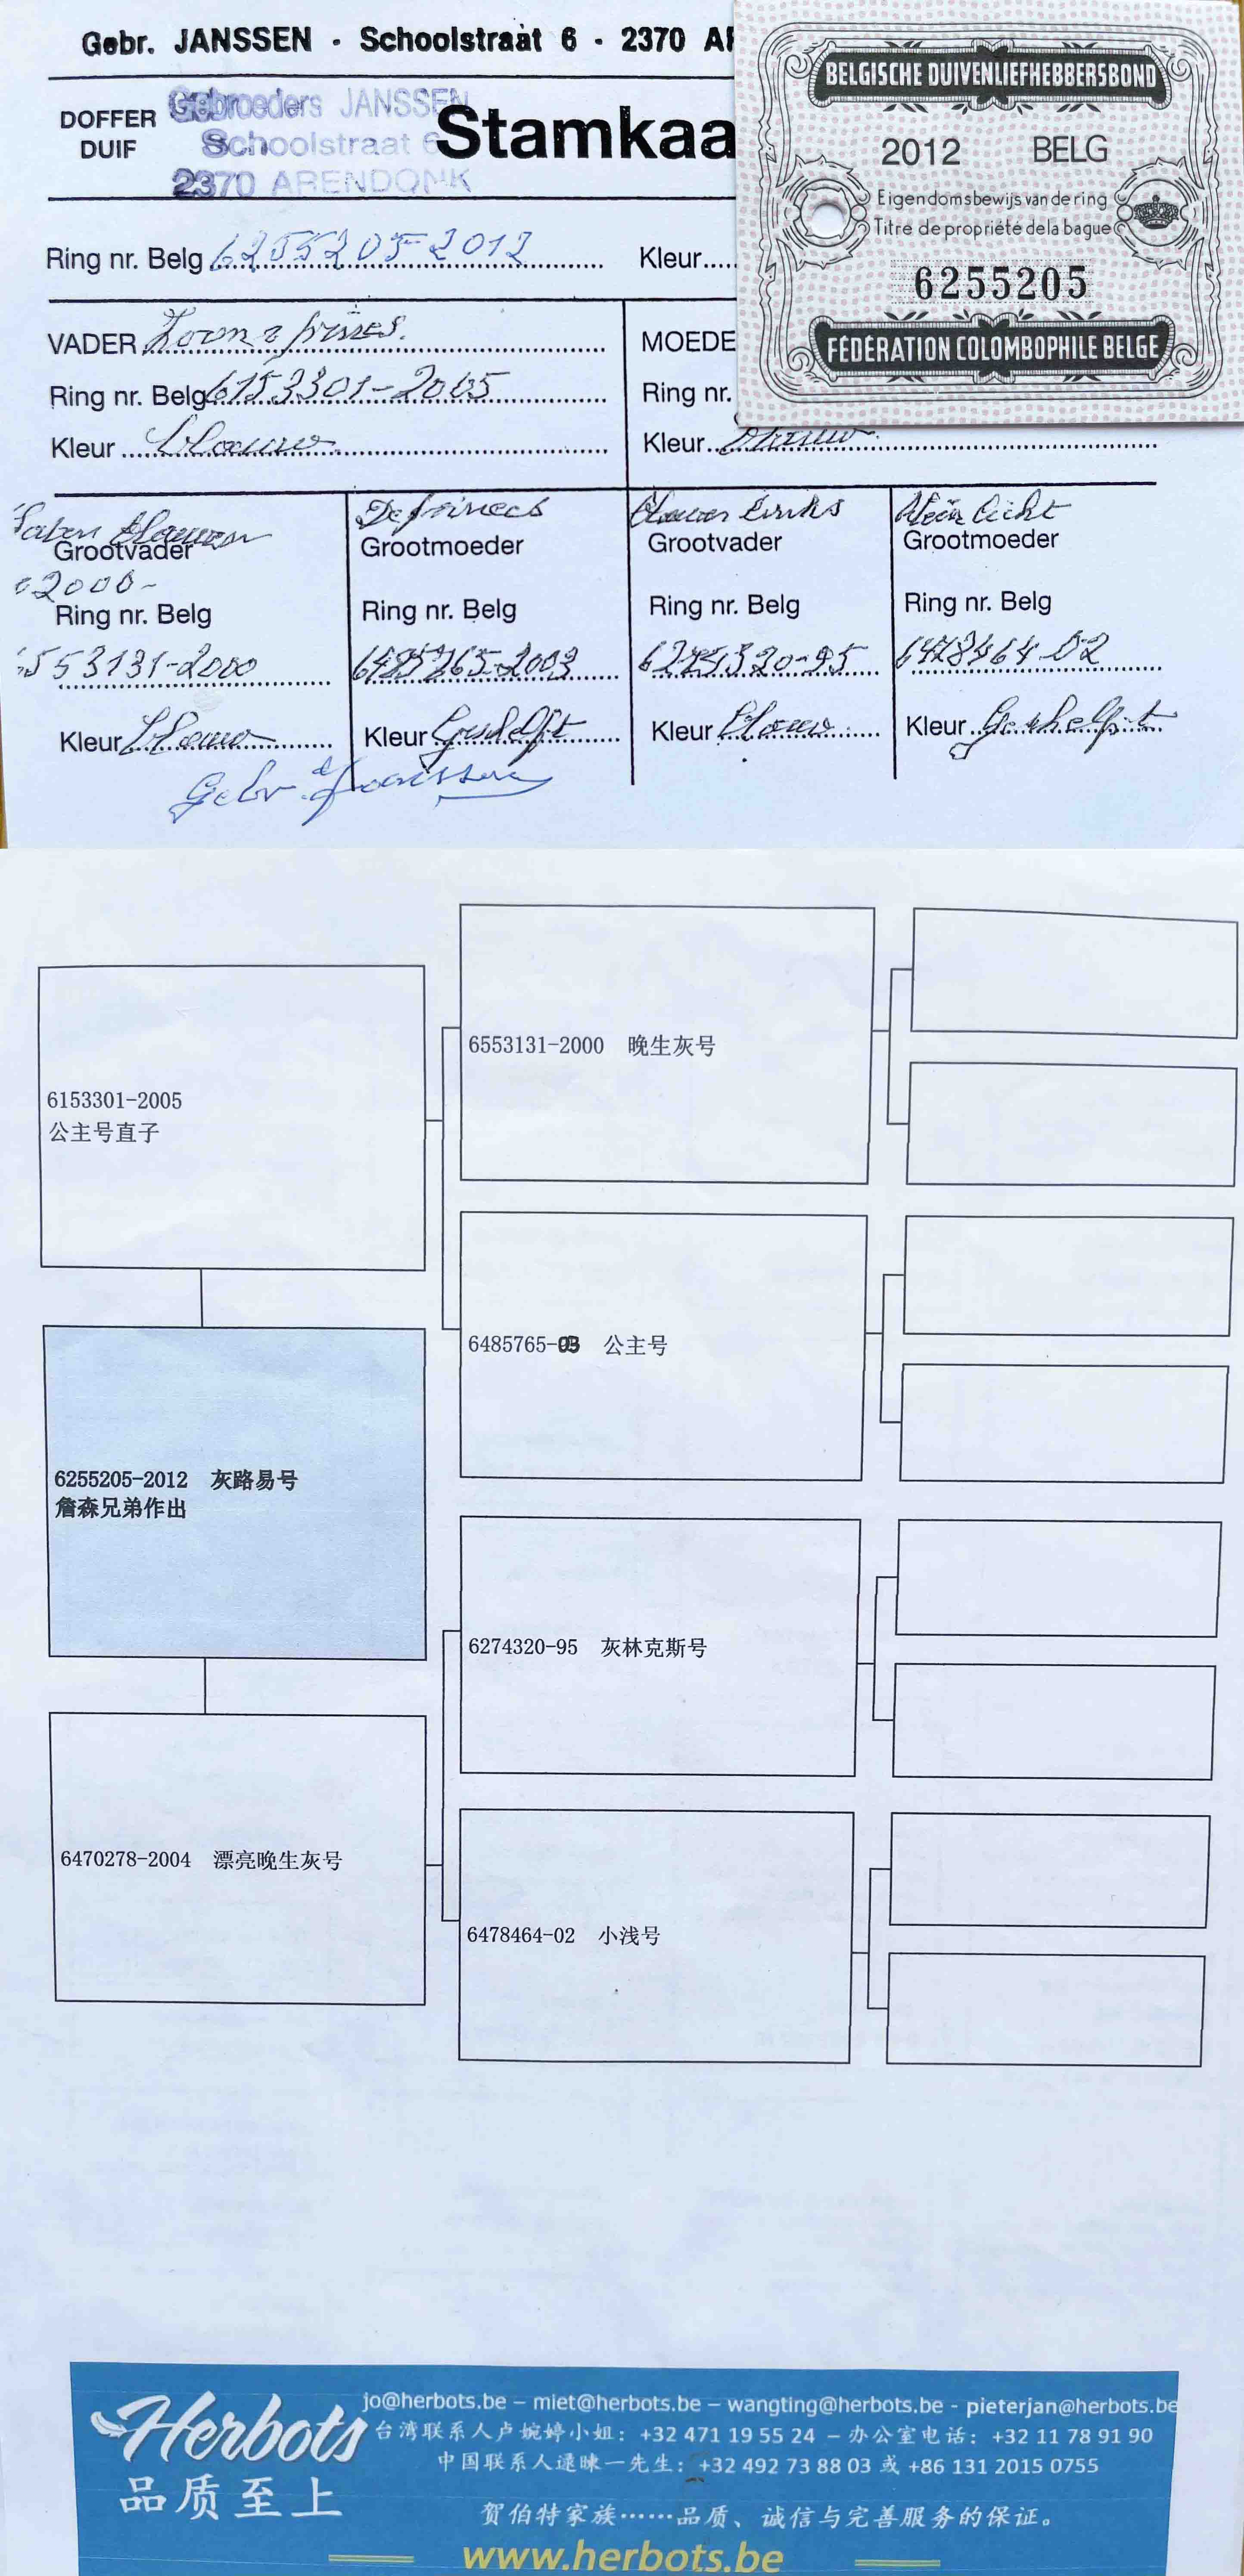 Gebr. JANSSEN - Schoolstraat 6 - 2370 A
DOFFER
DUIF
Gebroeders JANSSEN
Schoolstraat 6
2370 ARENDONK
Stamkaa
Ring nr. Belg 6255205-2012
Kleur
VADER Zoon prinses.
Ring nr. Belg 6153301-2005
Kleur Blauw
MOEDE
Ring nr.
Kleur Blauw
Laten Blauwen
Grootvader
2000-
Ring nr. Belg
553131-2000
Kleur Blauw
De prinses
Grootmoeder
Ring nr. Belg
6485765-2003
Kleur Geschelpt
Blauwe Links
Grootvader
Ring nr. Belg
6274320-95
Kleur Blauw
Klein licht
Grootmoeder
Ring nr. Belg
6478464-02
Kleur Geschelpt
Gebr. Janssen
BELGISCHE DUIVENLIEFHEBBERSBOND
2012 BELG
Eigendomsbewijs van de ring
Titre de propriété de la bague
6255205
FÉDÉRATION COLOMBOPHILE BELGE
6153301-2005
公主号直子
6553131-2000 晚生灰号
6485765-03 公主号
6255205-2012 灰路易号
詹森兄弟作出
6274320-95 灰林克斯号
6470278-2004 漂亮晚生灰号
6478464-02 小浅号
Herbots
品质至上
jo@herbots.be – miet@herbots.be – wangting@herbots.be - pieterjan@herbots.be
台湾联系人卢婉婷小姐: +32 471 19 55 24 – 办公室电话: +32 11 78 91 90
中国联系人逯暕一先生: +32 492 73 88 03 或 +86 131 2015 0755
贺伯特家族……品质、诚信与完善服务的保证。
www.herbots.be